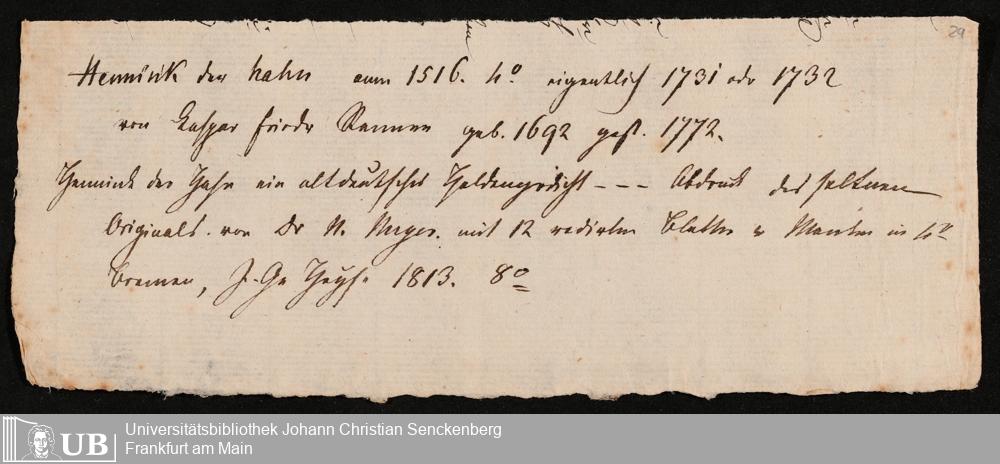 29
Hennink der hahn anni 1516. 4º. eigentlich 1731 odr 1732
von Caspar Friedr Rennen geb. 1692 gest. 1772.
Hennink der Hahn ein altdeutsches Heldengedicht - - - Abdruck des seltnen
Originals. von Dr N. Meyer. mit 12 radirten Blättr in 4º
Bremen, J. Ge Heyse 1813. 8º
Universitätsbibliothek Johann Christian Senckenberg
Frankfurt am Main
UB